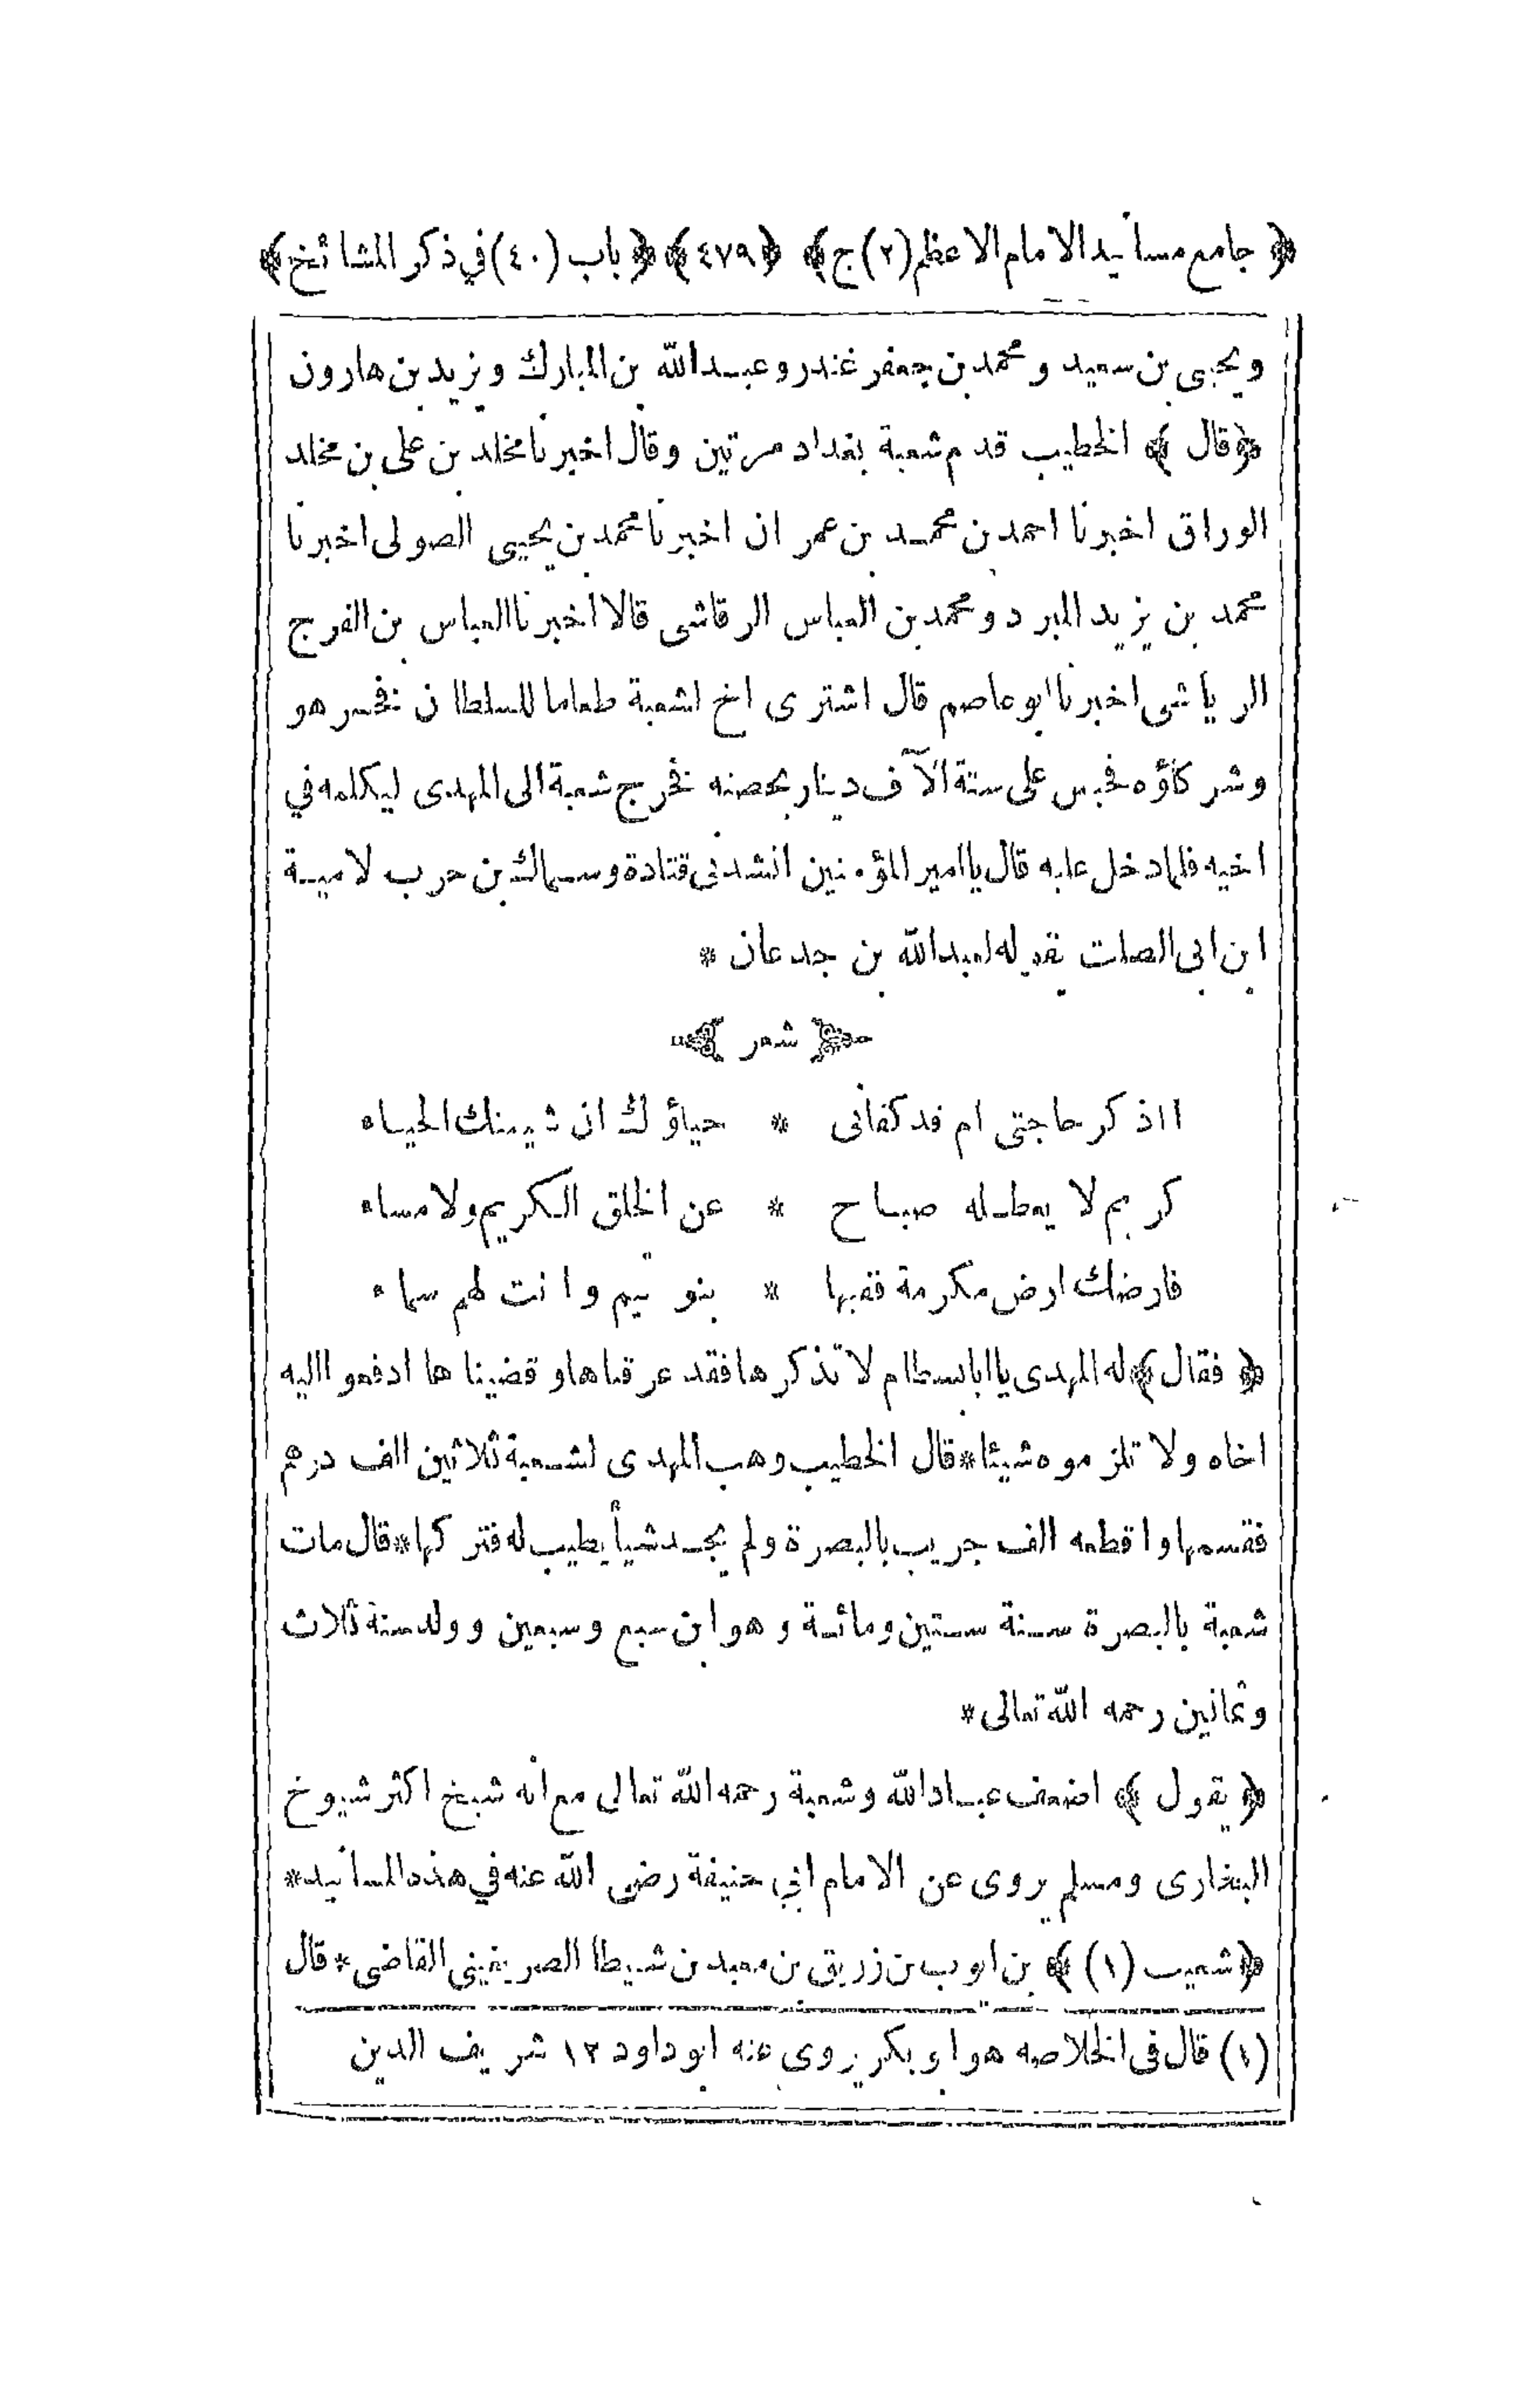 ﴿ جامع مسانيد الامام الاعظم (٢) ج ﴾ ﴿ ٤٧٩ ﴾ ﴿ باب (٤٠) في ذكر المشائخ ﴾
ويحيى بن سعيد ومحمد بن جعفر غندر وعبد الله بن المبارك ويزيد بن هارون
﴿ قال ﴾ الخطيب قدم شعبة بغداد مرتين وقال اخبرنا مخلد بن على بن مخلد
الوراق اخبرنا احمد بن محمد بن عمر ان اخبرنا محمد بن يحيى الصولى اخبرنا
محمد بن يزيد المبرد ومحمد بن العباس الرقاشى قالا اخبرنا العباس بن الفرج
الرياشى اخبرنا ابو عاصم قال اشترى اخ لشعبة طعاما للسلطان نخسر هو
وشركاؤه فحبس على ستة الآف دينار بحصته فخرج شعبة الى المهدى ليكلمه في
اخيه فلما دخل عليه قال يا امير المؤمنين انشدنى قتادة وسماك بن حرب لامية
ابن ابى الصلت يقوله لعبد الله بن جدعان *
﴿ شعر ﴾
ااذكر حاجتى ام قد كفانى * حياؤك ان شيمتك الحياء
كريم لا يعطله صباح * عن الخلق الكريم ولا مساء
فارضك ارض مكرمة بنتها * بنو تيم وانت لهم سماء
﴿ فقال ﴾ له المهدى يا ابا بسطام لا تذكرها فقد عرفناها وقضيناها ادفعوا اليه
اخاه ولا تلزموه شيئا * قال الخطيب وهب المهدى لشعبة ثلاثين الف درهم
فقسمها واقطعه الف جريب بالبصرة ولم يجد شيأ يطيب له فتركها * قال مات
شعبة بالبصرة سنة ستين ومائة وهو ابن سبع وسبعين وولد سنة ثلاث
وثمانين رحمه الله تعالى *
﴿ يقول ﴾ اضعف عباد الله وشعبة رحمه الله تعالى مع انه شيخ اكثر شيوخ
البخارى ومسلم يروى عن الامام ابي حنيفة رضى الله عنه في هذه المسانيد *
﴿ شعيب (١) ﴾ بن ايوب بن زريق بن معبد بن شيطا الصريفينى القاضى * قال
(١) قال فى الخلاصه هو ابو بكر يروى عنه ابو داود ١٢ شريف الدين